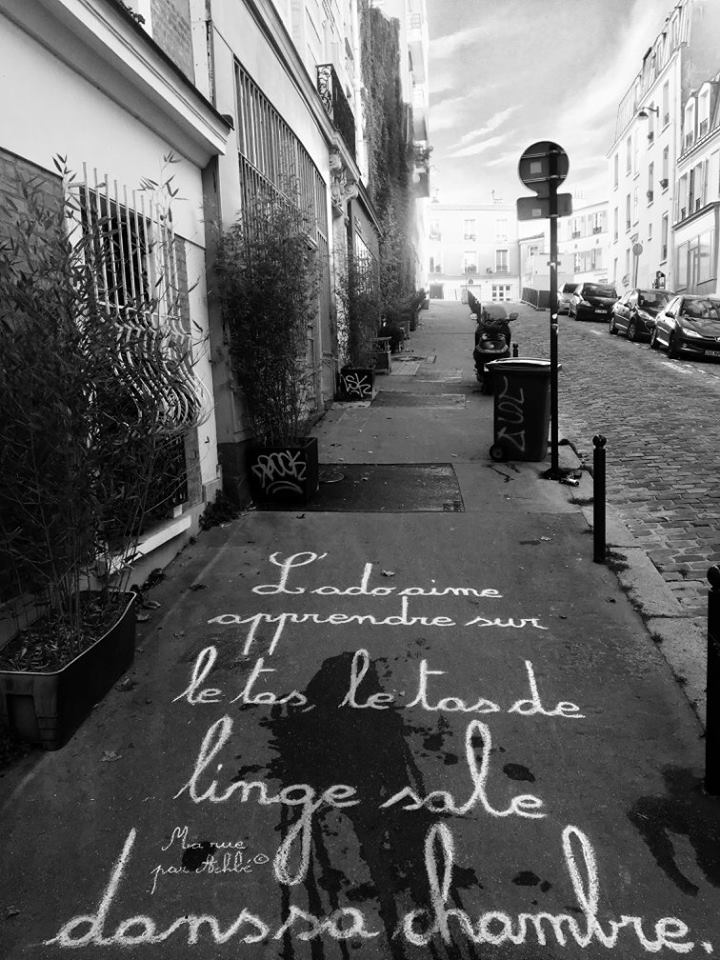 L'ado aime
apprendre sur
le tas, le tas de
linge sale
dans sa chambre.
Ma rue
par Achbé©